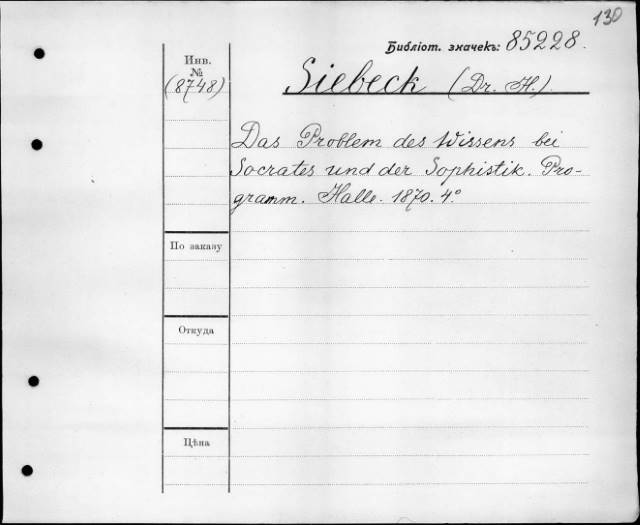 130
Библіот. значекъ: 85228.
Инв.
№
(8748)
Siebeck (Dr. H.)
Das Problem des Wissens bei
Socrates und der Sophistik. Pro-
gramm. Halle. 1870. 4°
По заказу
Откуда
Цѣна